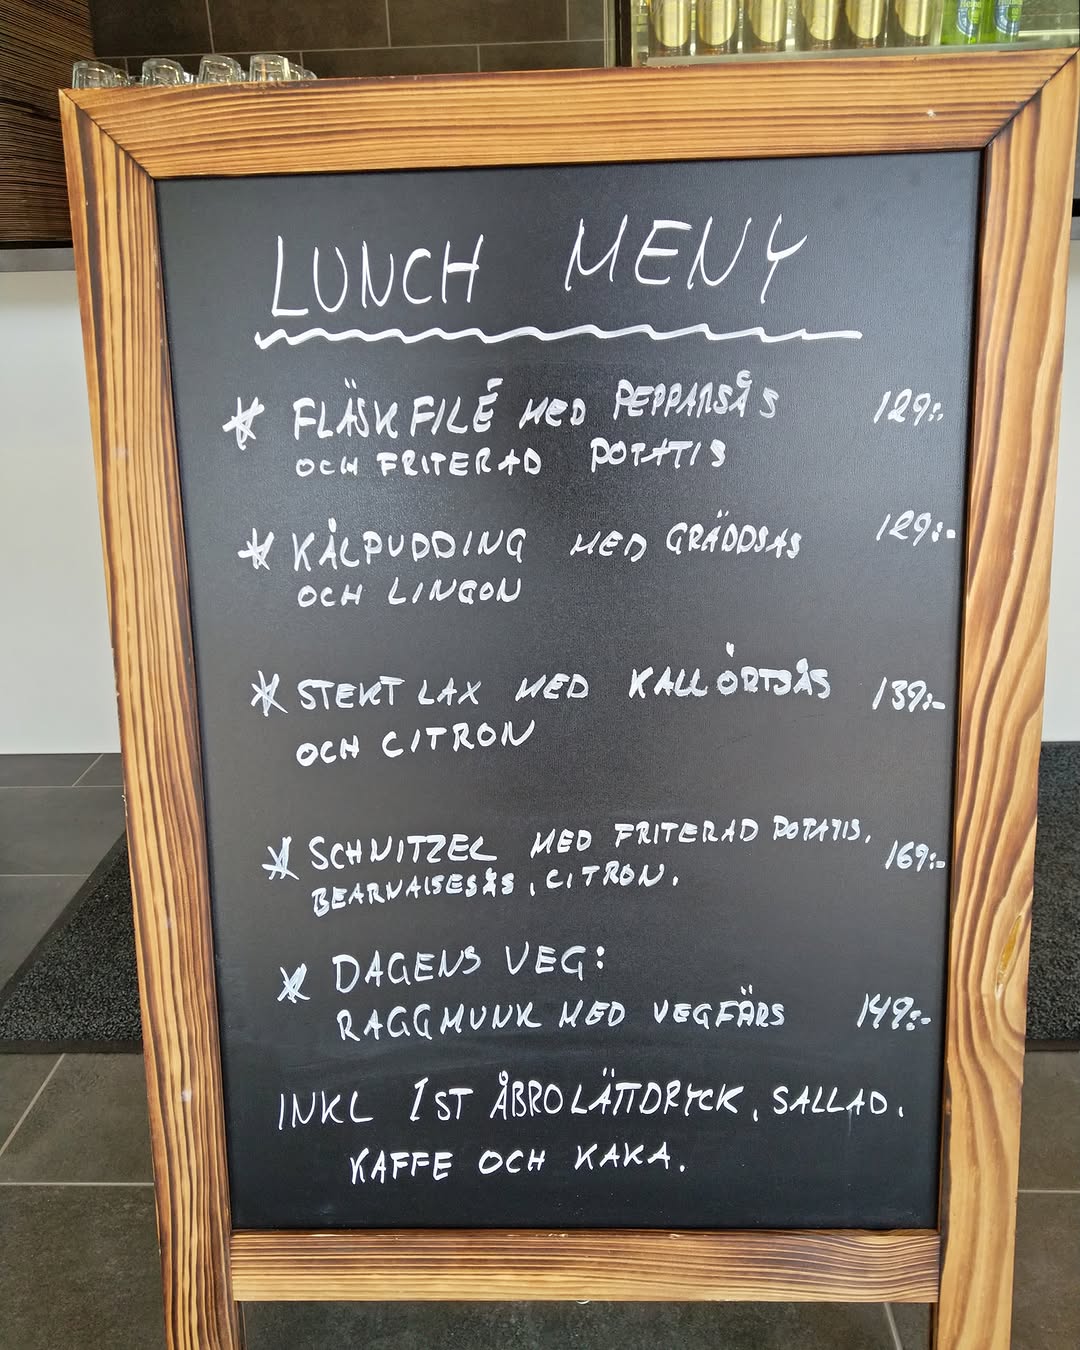 LUNCH MENY
* FLÄSKFILÉ MED PEPPARSÅS 129:-
OCH FRITERAD POTATIS
* KÅLPUDDING MED GRÄDDSÅS 129:-
OCH LINGON
* STEKT LAX MED KALL ÖRTSÅS 139:-
OCH CITRON
* SCHNITZEL MED FRITERAD POTATIS, 169:-
BEARNAISESÅS, CITRON.
* DAGENS VEG:
RAGGMUNK MED VEGFÄRS 149:-
INKL 1ST ÅBRO LÄTTDRYCK, SALLAD,
KAFFE OCH KAKA.